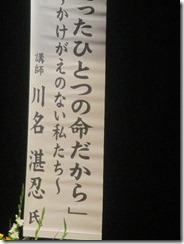 ったひとつの命だから」
かけがえのない私たち～
講師 川名 湛忍 氏